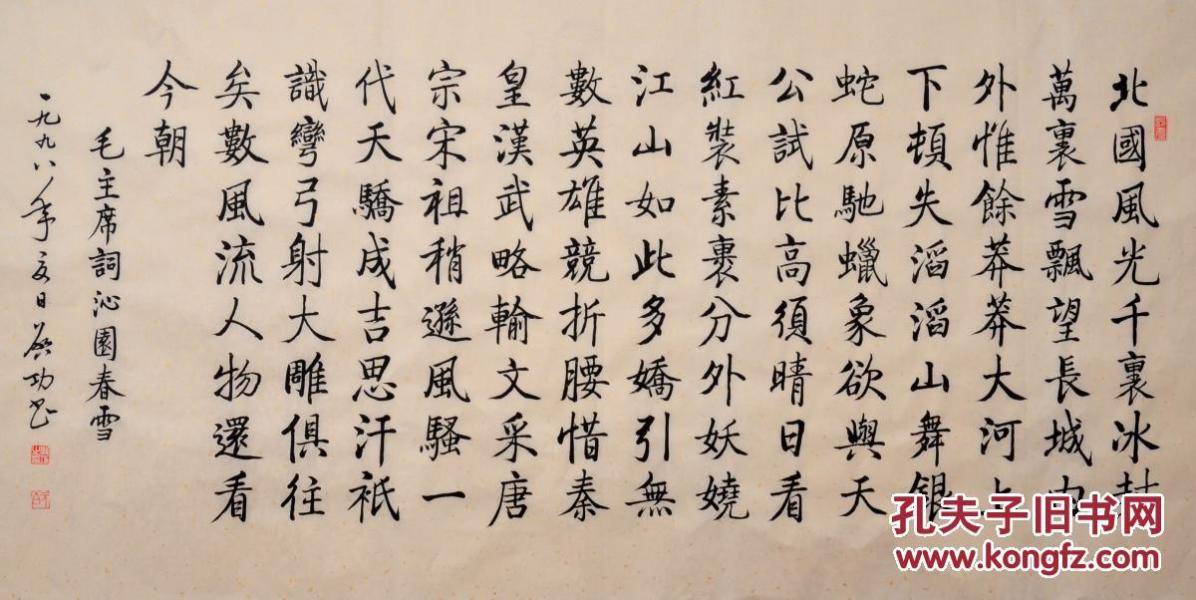 北國風光千裏冰封
萬裏雪飄望長城內
外惟餘莽莽大河上
下頓失滔滔山舞銀
蛇原馳蠟象欲與天
公試比高須晴日看
紅裝素裹分外妖嬈
江山如此多嬌引無
數英雄競折腰惜秦
皇漢武略輸文采唐
宗宋祖稍遜風騷一
代天驕成吉思汗祇
識彎弓射大雕俱往
矣數風流人物還看
今朝
毛主席詞沁園春雪
一九九八年夏日啟功書
孔夫子旧书网
www.kongfz.com